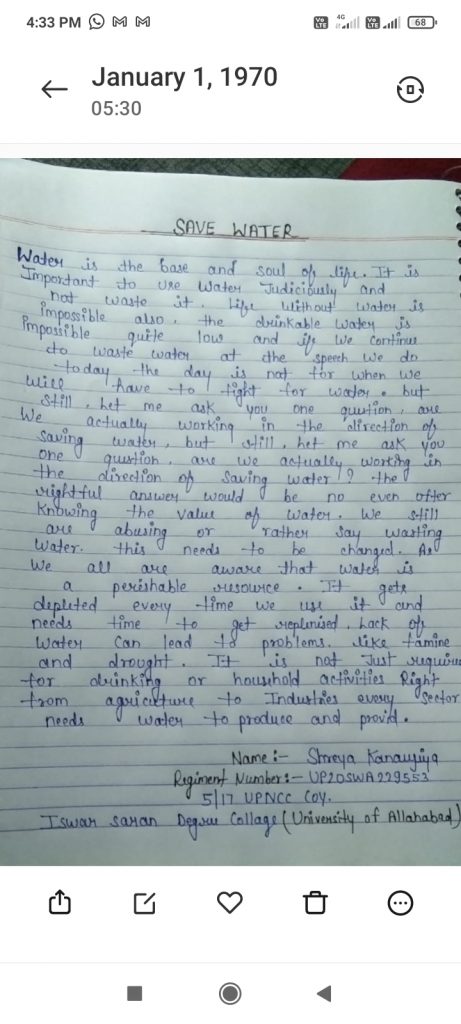 4:33 PM
4G
Vo LTE
Vo LTE
68
January 1, 1970
05:30
SAVE WATER
Water is the base and soul of life. It is
Important to use Water Judiciously and
not waste it. Life without water is
impossible also, the drinkable water is
impossible quite low and if We Continue
to waste water at the speech We do
today the day is not for when We
Will have to fight for water. but
still, Let me ask you one question, are
We actually working in the direction of
Saving water, but still, Let me ask you
One question, are we actually working in
the direction of saving water!? the
rightful answer would be no even after
Knowing the value of water. We still
are abusing or rather say wasting
Water. this needs to be changed. As
We all are aware that water is
a perishable resource. It gets
depleted every time we use it and
needs time to get replenised. Lack of
Water Can lead to problems. like famine
and drought. It is not Just require
for drinking or household activities Right
from agriculture to Industries every Sector
needs water to produce and provid.
Name :- Shreya Kanaujiya
Regiment Number :- UP20SWA229553
5/17 UPNCC COY.
Iswar Saran Degree Collage (University of Allahabad)